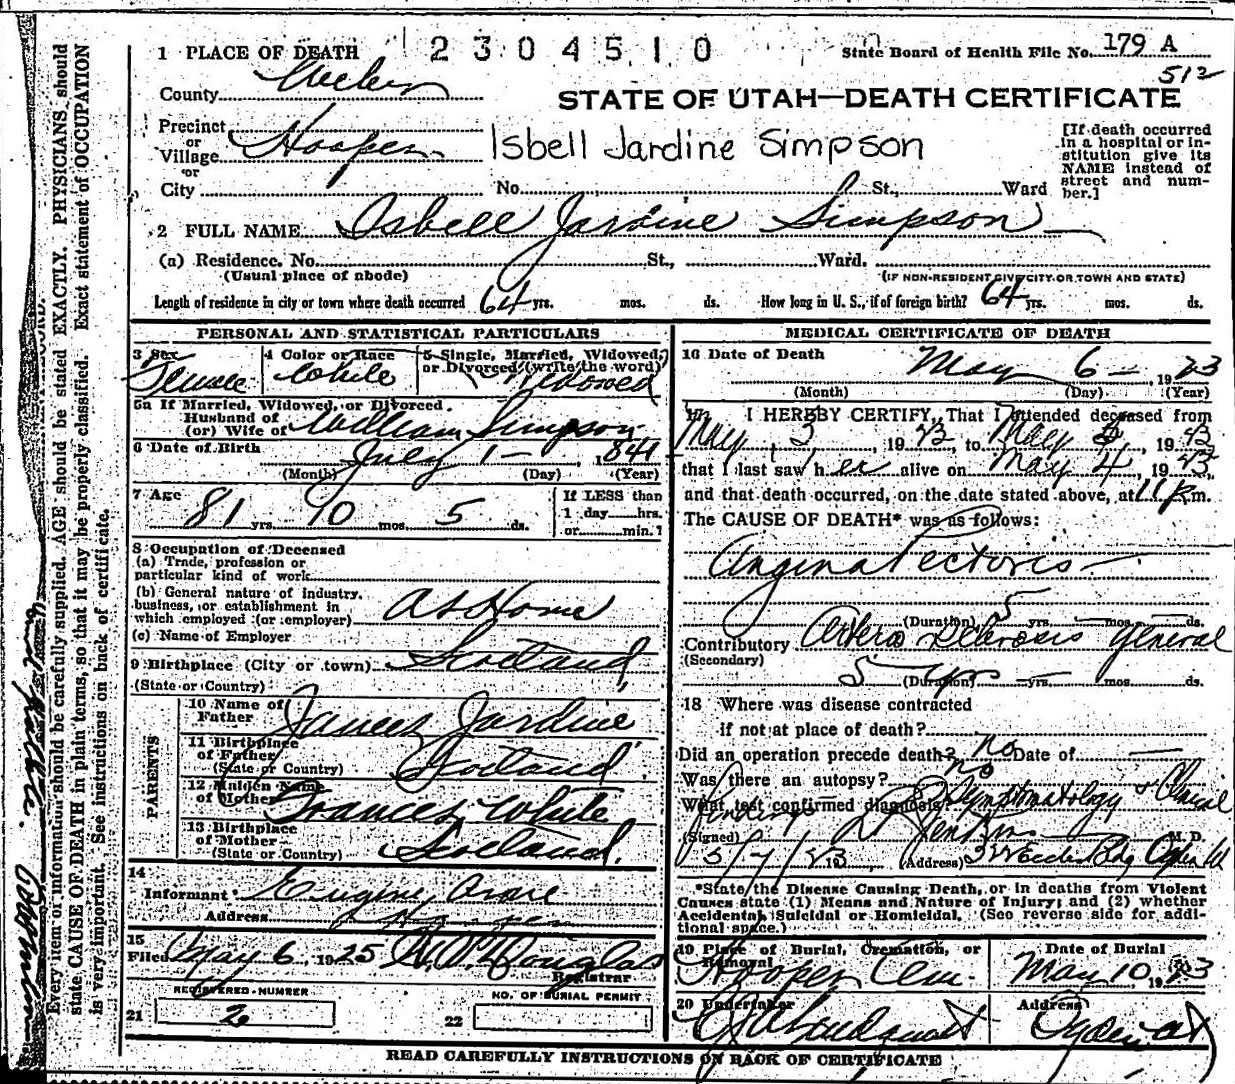 1 PLACE OF DEATH 2304510 State Board of Health File No. 179 A
512
County Weber
STATE OF UTAH—DEATH CERTIFICATE
Precinct
or
Village Hooper
Isbell Jardine Simpson
[If death occurred in a hospital or institution give its NAME instead of street and number.]
or
City No. St., Ward
2 FULL NAME Isbell Jardine Simpson
(a) Residence. No. St., Ward.
(Usual place of abode) (IF NON-RESIDENT GIVE CITY OR TOWN AND STATE)
Length of residence in city or town where death occurred 64 yrs. mos. ds. How long in U. S., if of foreign birth? 64 yrs. mos. ds.
PERSONAL AND STATISTICAL PARTICULARS
3 Sex 4 Color or Race 5 Single, Married, Widowed,
or Divorced (write the word)
Female White Widowed
5a If Married, Widowed, or Divorced.
Husband of
(or) Wife of William Simpson
6 Date of Birth July 1 — 1841
(Month) (Day) (Year)
7 Age 81 yrs. 10 mos. 5 ds.
If LESS than
1 day hrs.
or min.?
8 Occupation of Deceased
(a) Trade, profession or
particular kind of work
(b) General nature of industry,
business, or establishment in
which employed (or employer) At Home
(c) Name of Employer
9 Birthplace (City or town) Scotland
(State or Country)
PARENTS
10 Name of
Father James Jardine
11 Birthplace
of Father
(State or Country) Scotland
12 Maiden Name
of Mother Frances White
13 Birthplace
of Mother
(State or Country) Scotland.
14
Informant Eugine
Address Hooper
15
Filed May 6, 1925
Douglas
Registrar
REGISTERED NUMBER
21 2
NO. OF BURIAL PERMIT
22
MEDICAL CERTIFICATE OF DEATH
16 Date of Death May 6 — 1923
(Month) (Day) (Year)
17 I HEREBY CERTIFY, That I attended deceased from
May, 3, 1923, to May, 1923
that I last saw her alive on May 4, 1923,
and that death occurred, on the date stated above, at 11 P m.
The CAUSE OF DEATH* was as follows:
Angina Pectoris —
(Duration) 5 yrs. mos. ds.
Contributory Arterio Sclerosis General
(Secondary)
5 yrs (Duration) yrs. mos. ds.
18 Where was disease contracted
if not at place of death?
Did an operation precede death? no Date of
Was there an autopsy? no
What test confirmed diagnosis? Symptmatology & Clinical
findings
(Signed) Jenkins M. D.
5/7/23 (Address) Eccles Bldg Ogden Ut
*State the Disease Causing Death, or in deaths from Violent
Causes state (1) Means and Nature of Injury; and (2) whether
Accidental, Suicidal or Homicidal. (See reverse side for additional space.)
19 Place of Burial, Cremation, or
Removal
Hooper Cem.
Date of Burial
May 10, 1923
20 Undertaker
Address
Ogden Ut
READ CAREFULLY INSTRUCTIONS ON BACK OF CERTIFICATE
Every item of information should be carefully supplied. AGE should be stated EXACTLY. PHYSICIANS should
state CAUSE OF DEATH in plain terms, so that it may be properly classified. Exact statement of OCCUPATION
is very important. See instructions on back of certificate.